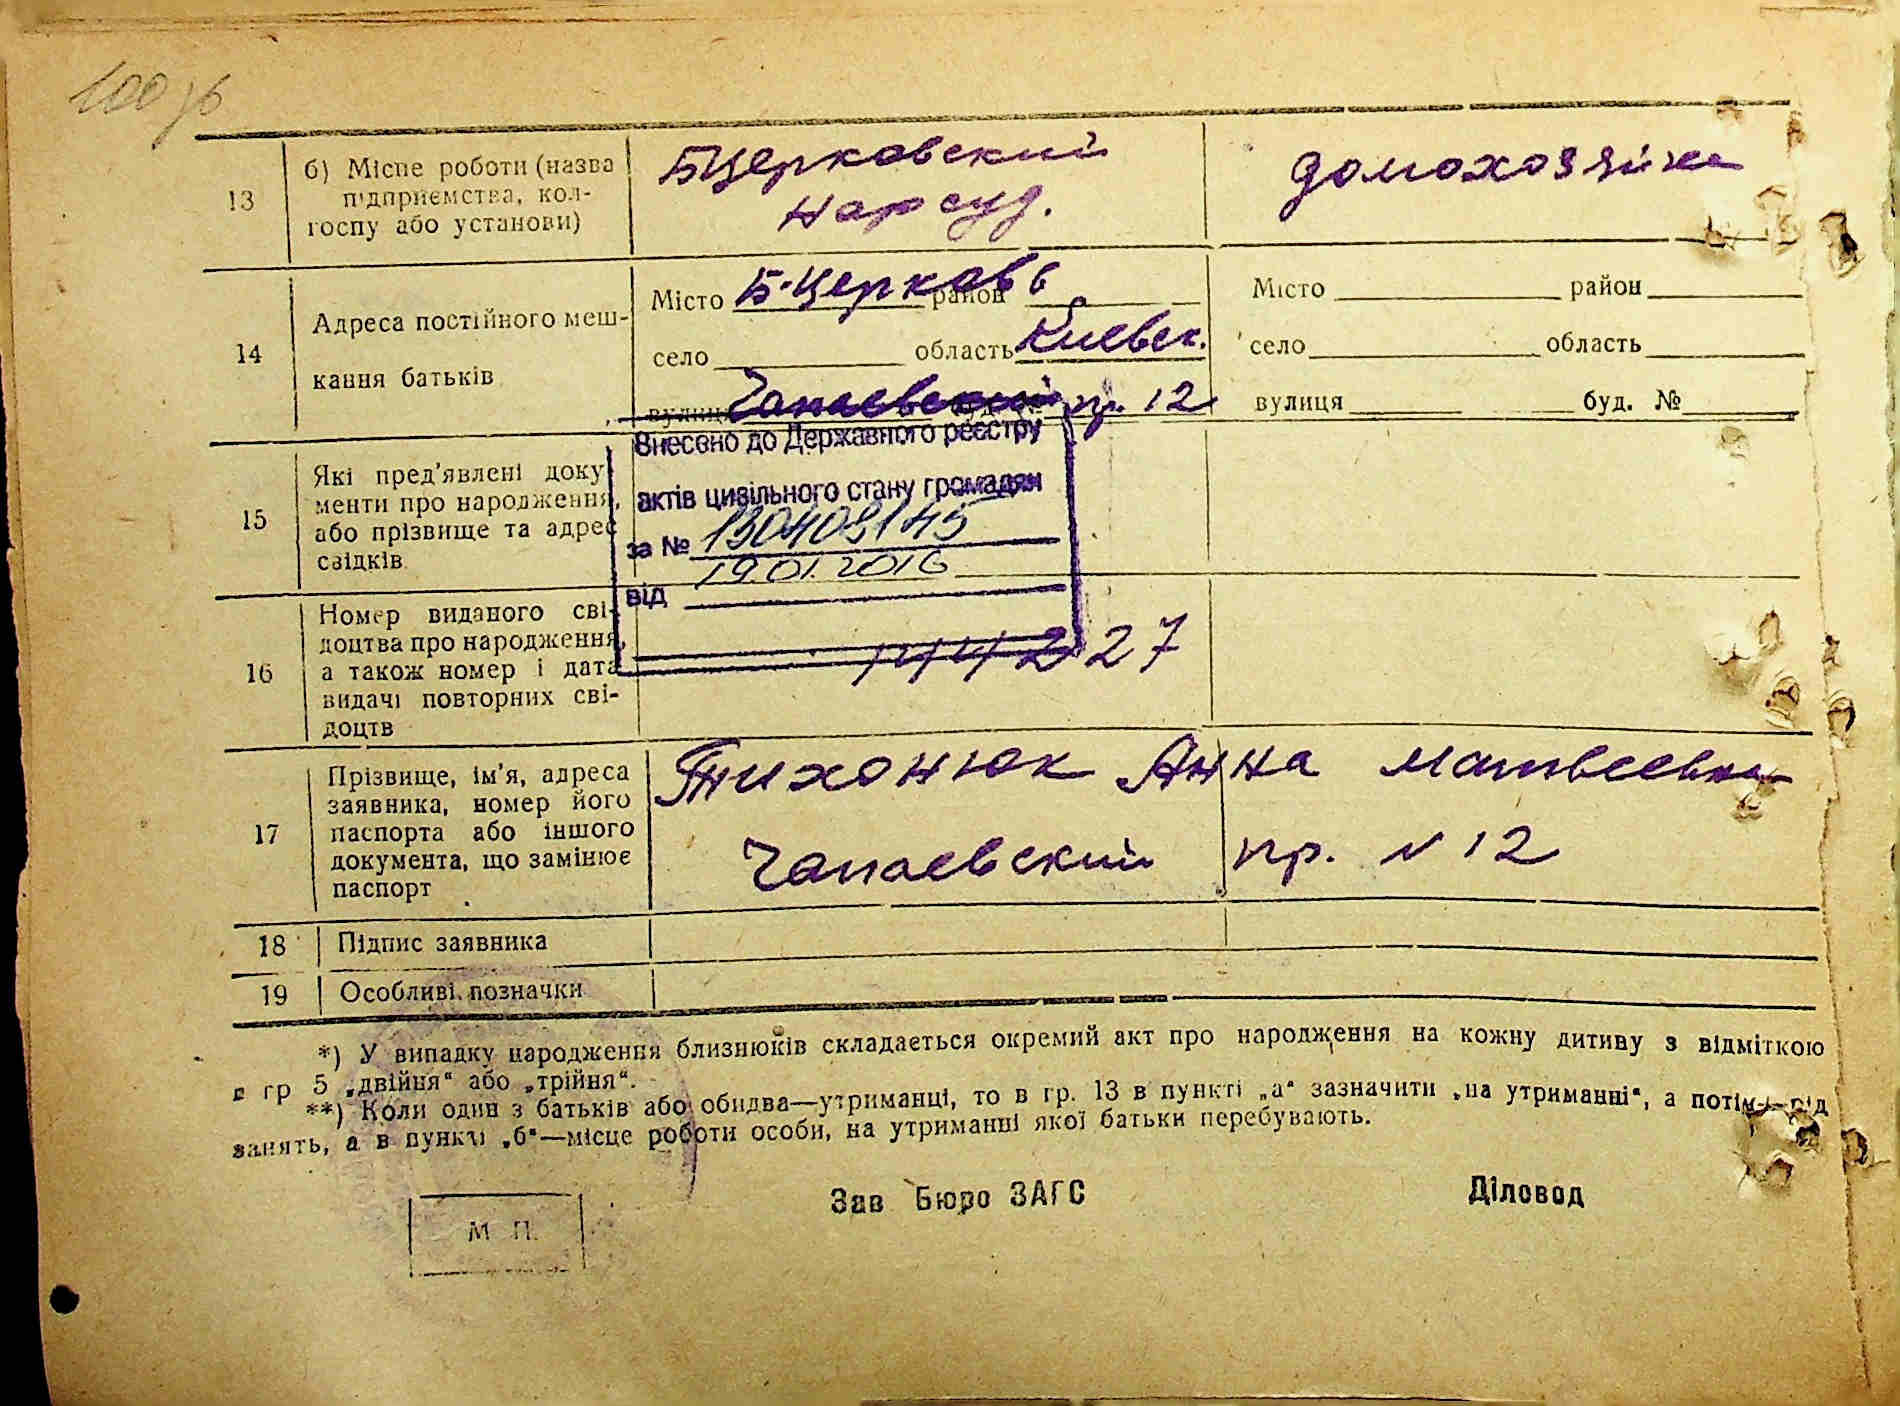 100 зб
13
б) Місце роботи (назва
підприємства, кол-
госпу або установи)
БЦерковский
Нарсуд.
домохозяйка
14
Адреса постійного меш-
кання батьків
Місто Б-Церковь район
село область Киевск.
вулиця Чапаевский пр. 12
Місто район
село область
вулиця буд. №
15
Які пред'явлені доку-
менти про народження,
або прізвище та адрес
свідків
Внесено до Державного реєстру
актів цивільного стану громадян
за №
від 19.01.2016
16
Номер виданого сві-
доцтва про народження,
а також номер і дата
видачі повторних сві-
доцтв
17
Прізвище, ім'я, адреса
заявника, номер його
паспорта або іншого
документа, що замінює
паспорт
Тихонюк Анна Матвеевна
Чапаевский пр. № 12
18 Підпис заявника
19 Особливі позначки
*) У випадку народження близнюків складається окремий акт про народження на кожну дитину з відміткою
в гр 5 „двійня“ або „трійня“.
**) Коли один з батьків або обидва—утриманці, то в гр. 13 в пункті „а“ зазначити „на утриманні“, а потім рід
занять, а в пункті „б“—місце роботи особи, на утриманні якої батьки перебувають.
Зав Бюро ЗАГС
Діловод
М П.